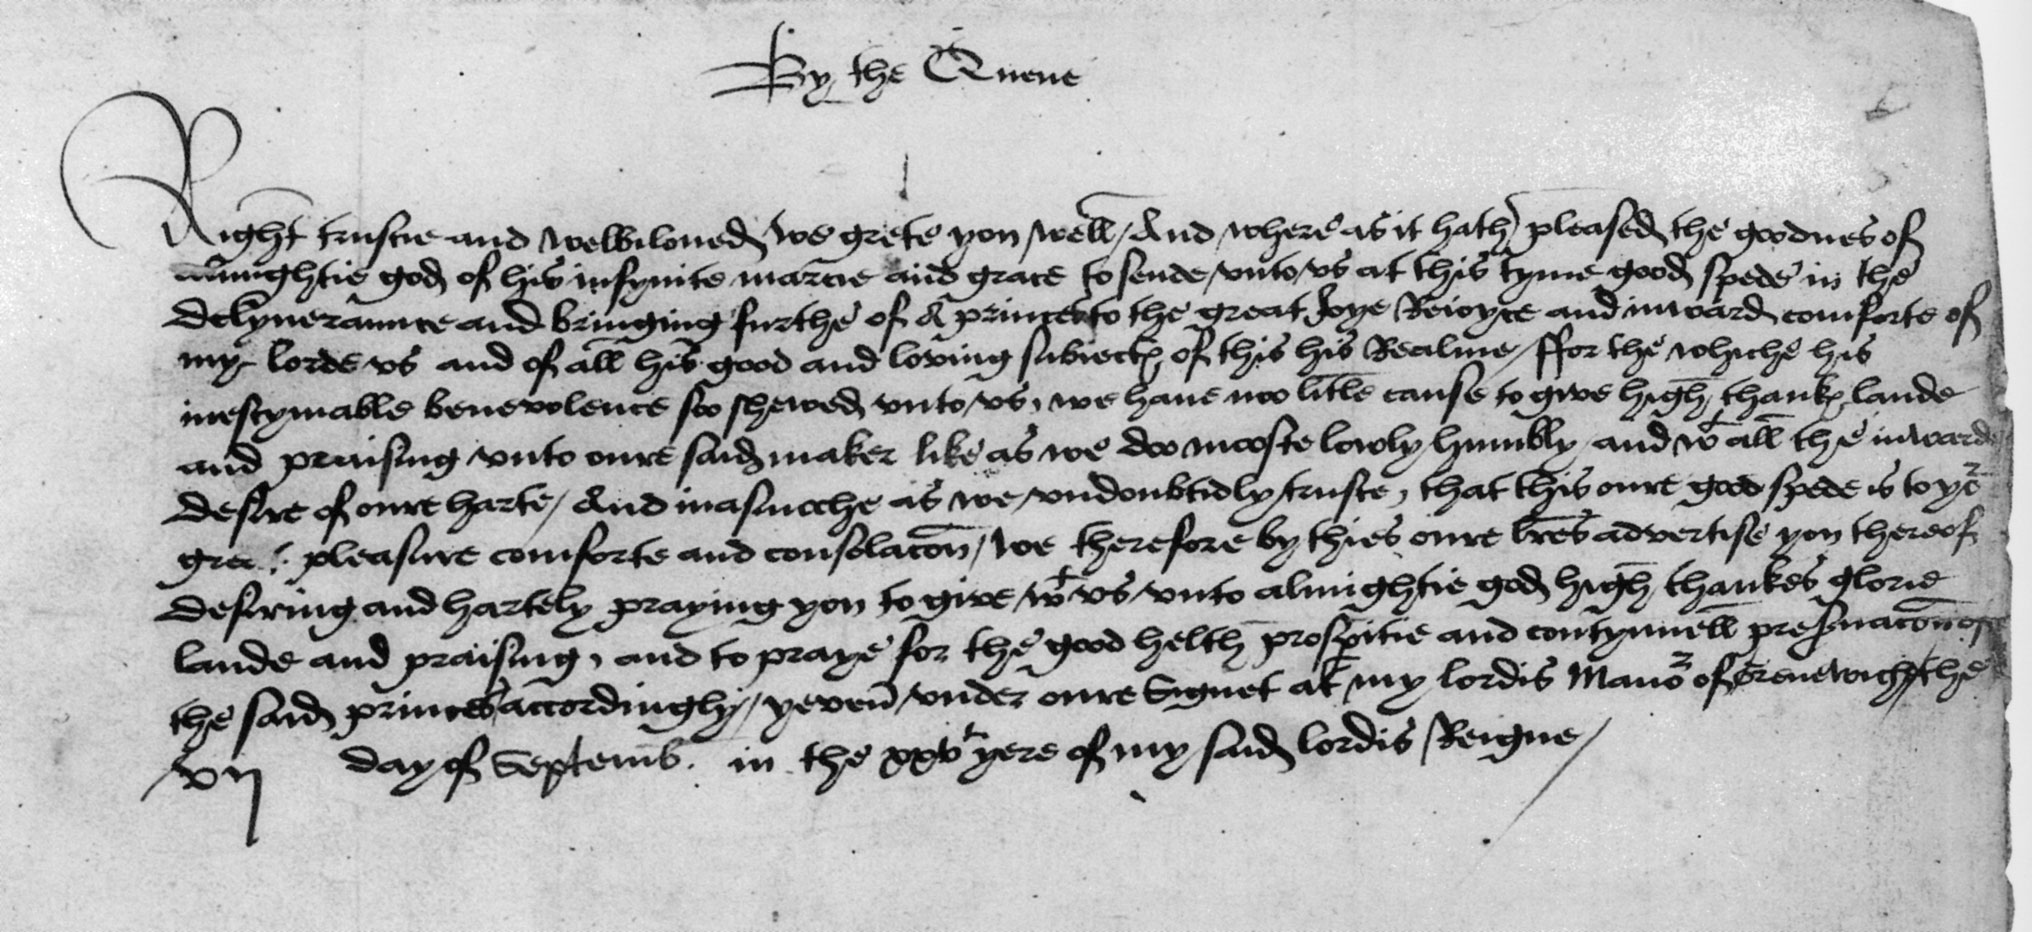 By the Quene
Right trustie and welbiloued we grete you well / And where as it hath pleased the goodnes of
almightie god of his infynite marcie and grace to sende vnto vs at this tyme good spede in the
delyueraunce and bringing furthe of A princes to the great Joye Reioyce and inward comforte of
my lorde vs and of all his good and loving subiectꝭ of this his Realme / ffor the whiche his
inestymable benevolence soo shewed vnto vs, we haue noo litle cause to give high thankꝭ laude
and praising vnto oure said maker like as we doo mooste lowly humbly and wᵗ all the inward
desire of oure harte / And inasmoche as we vndoubtidly truste, that this oure good spede is to yoʳ
pleasure comforte and consolacōn / we therefore by thies oure l̃res advertise you thereof
desiring and hartely praying you to give wᵗ vs vnto almightie god high thankes glorie
laude and praising, and to praye for the good helth prosp̱itie and contynuell preẜuacōn of
the said princes accordingly / yeven vnder oure Signet at my lordis Manoʳ of Grenewich the
vij day of Septemb. in the xxvᵗʰ yere of my said lordis Reigne /